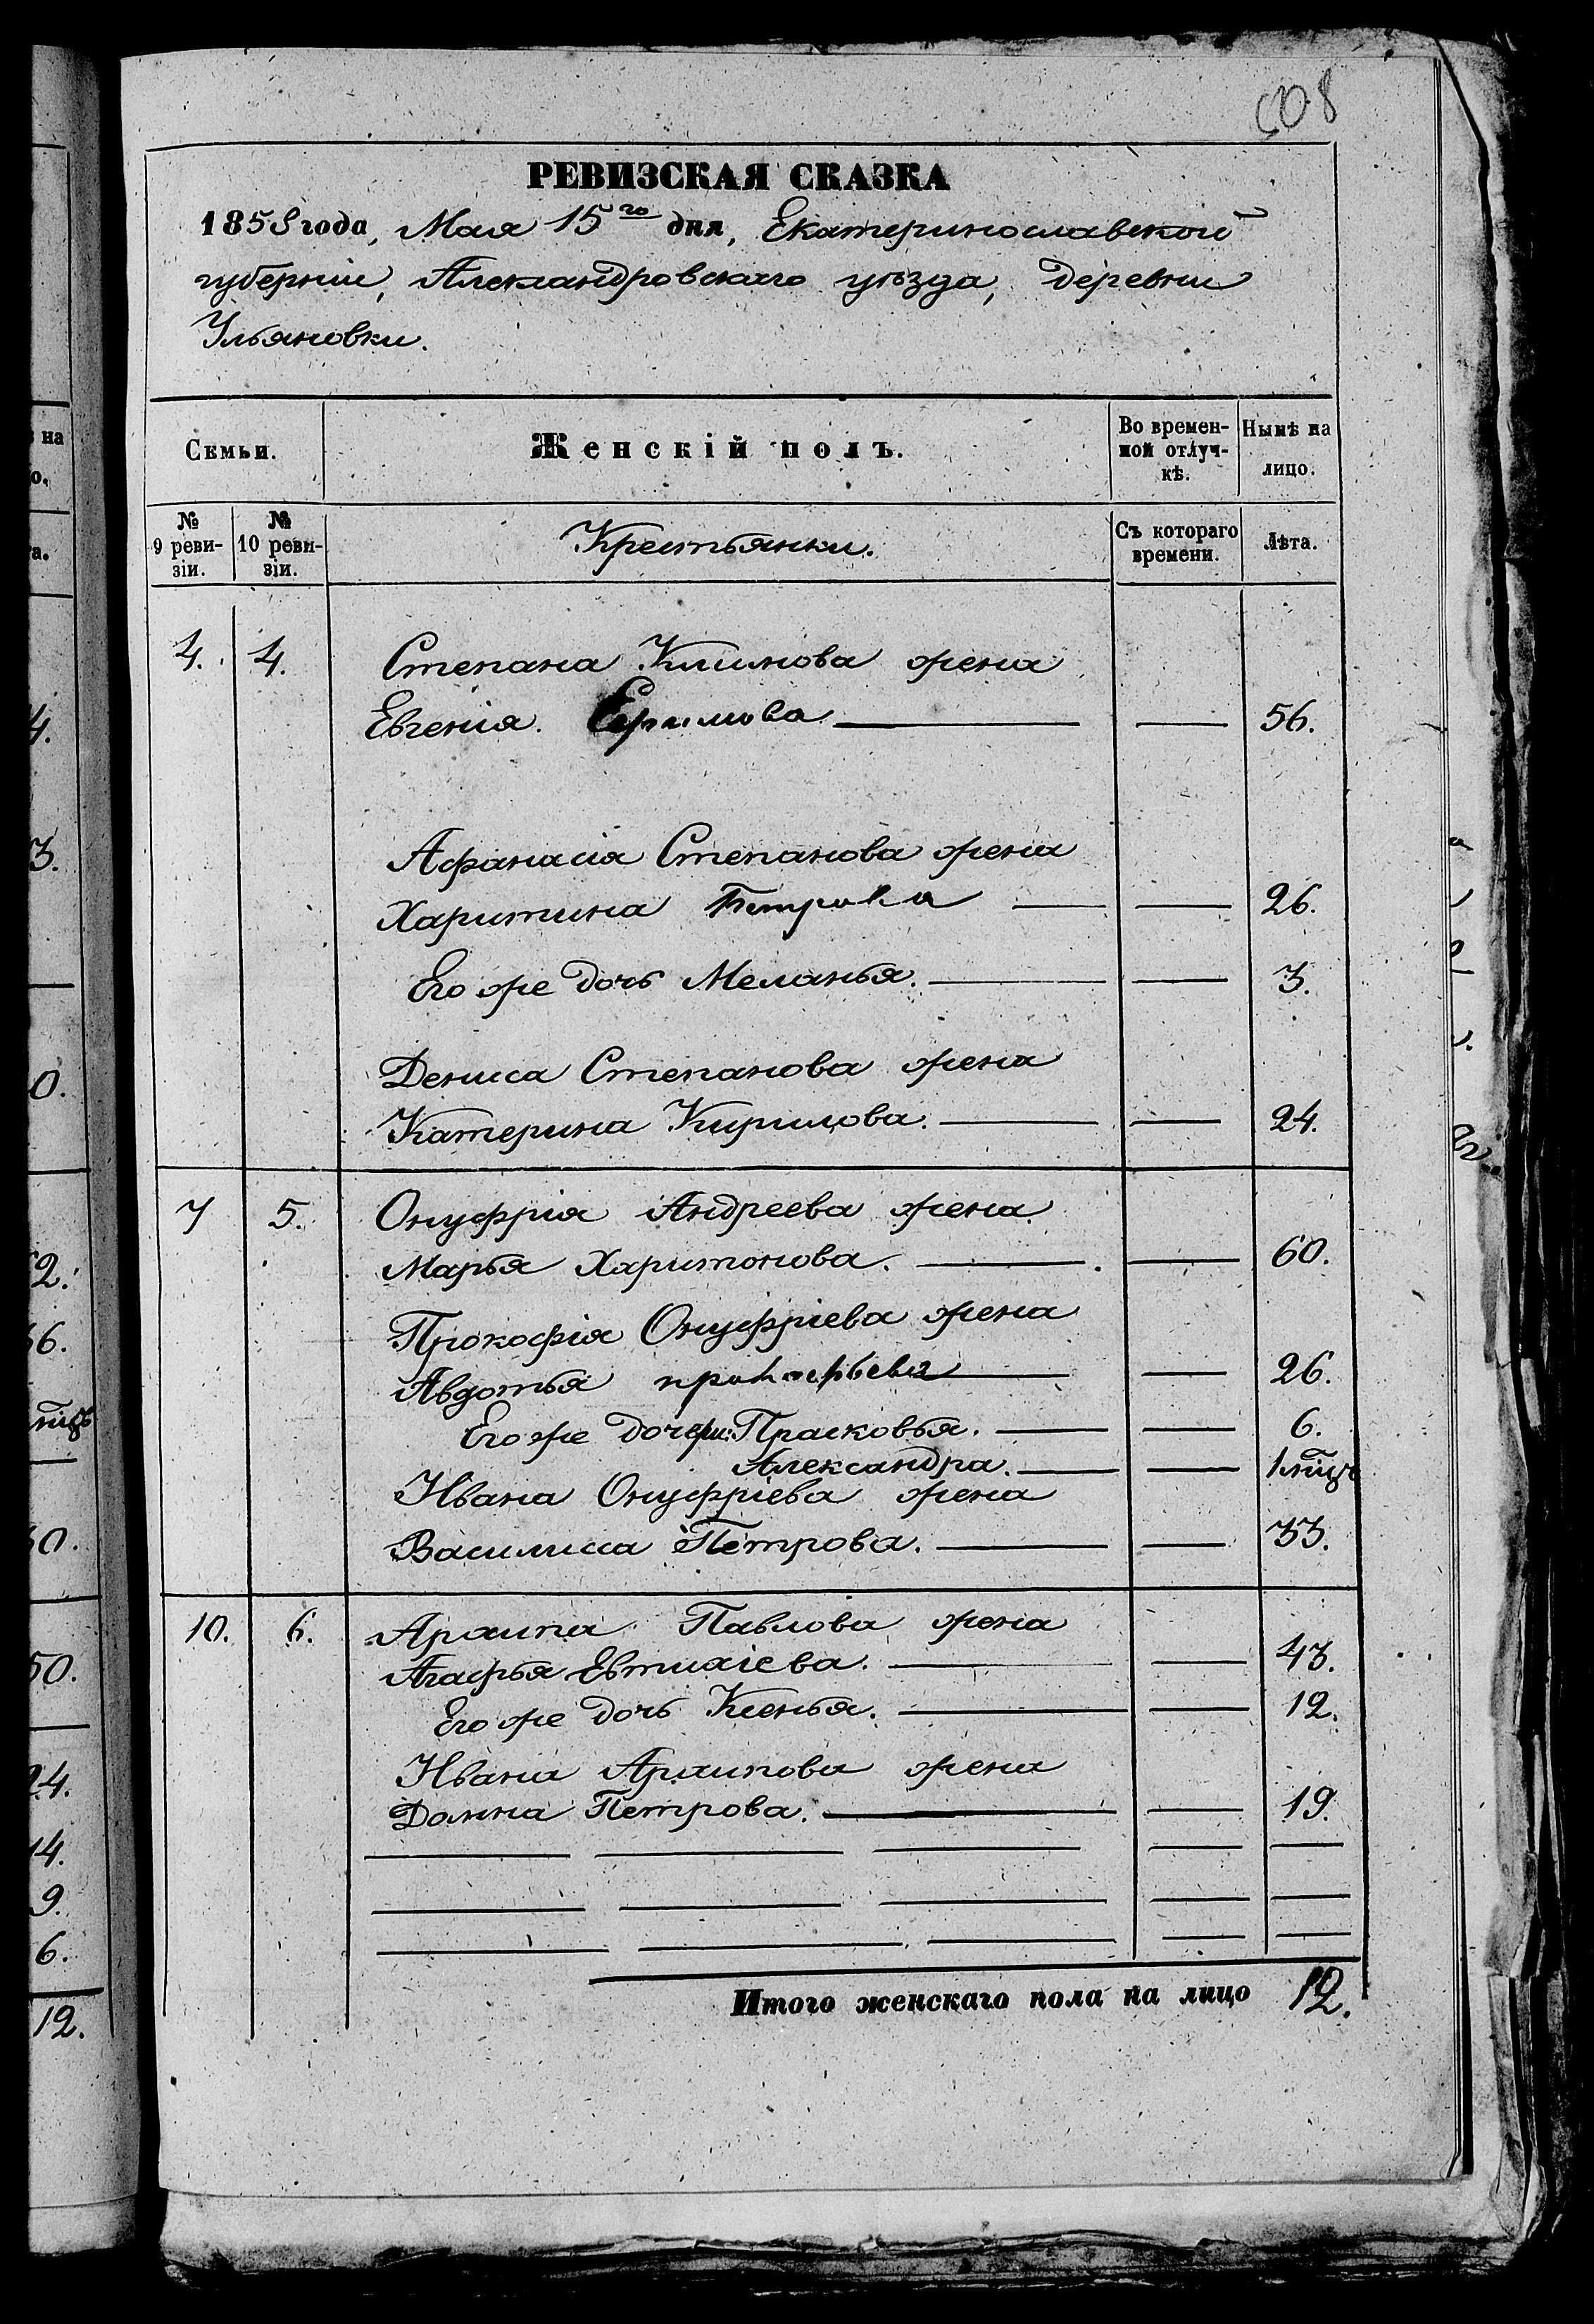 508
РЕВИЗСКАЯ СКАЗКА
1858 года, Мая 15го дня, Екатеринославской
губерніи, Александровскаго уѣзда, деревни
Ульяновки.
Семьи. Женскій полъ. Во времен-ной отлуч-кѣ. Нынѣ на лицо.
№ 9 реви-зіи. № 10 реви-зіи. Крестьянки. Съ котораго времени. Лѣта.
4. 4. Степана Климова жена
Евгенія Ефимова — — 56.
Афанасія Степанова жена
Харитина Петрова — — 26.
Его же дочь Меланья. — — 3.
Дениса Степанова жена
Катерина Кирилова. — — 24.
7 5. Онуфрія Андреева жена
Марья Харитонова. — — 60.
Прокофія Онуфріева жена
Авдотья прокофьева — — 26.
Его же дочери: Прасковья. — — 6.
Александра. — — 1 мѣцъ
Ивана Онуфріева жена
Василиса Петрова. — — 33.
10. 6. Архипа Павлова жена
Агафья Евтихіева. — — 43.
Его же дочь Ксенья. — — 12.
Ивана Архипова жена
Домна Петрова. — — 19.
Итого женскаго пола на лицо 12.